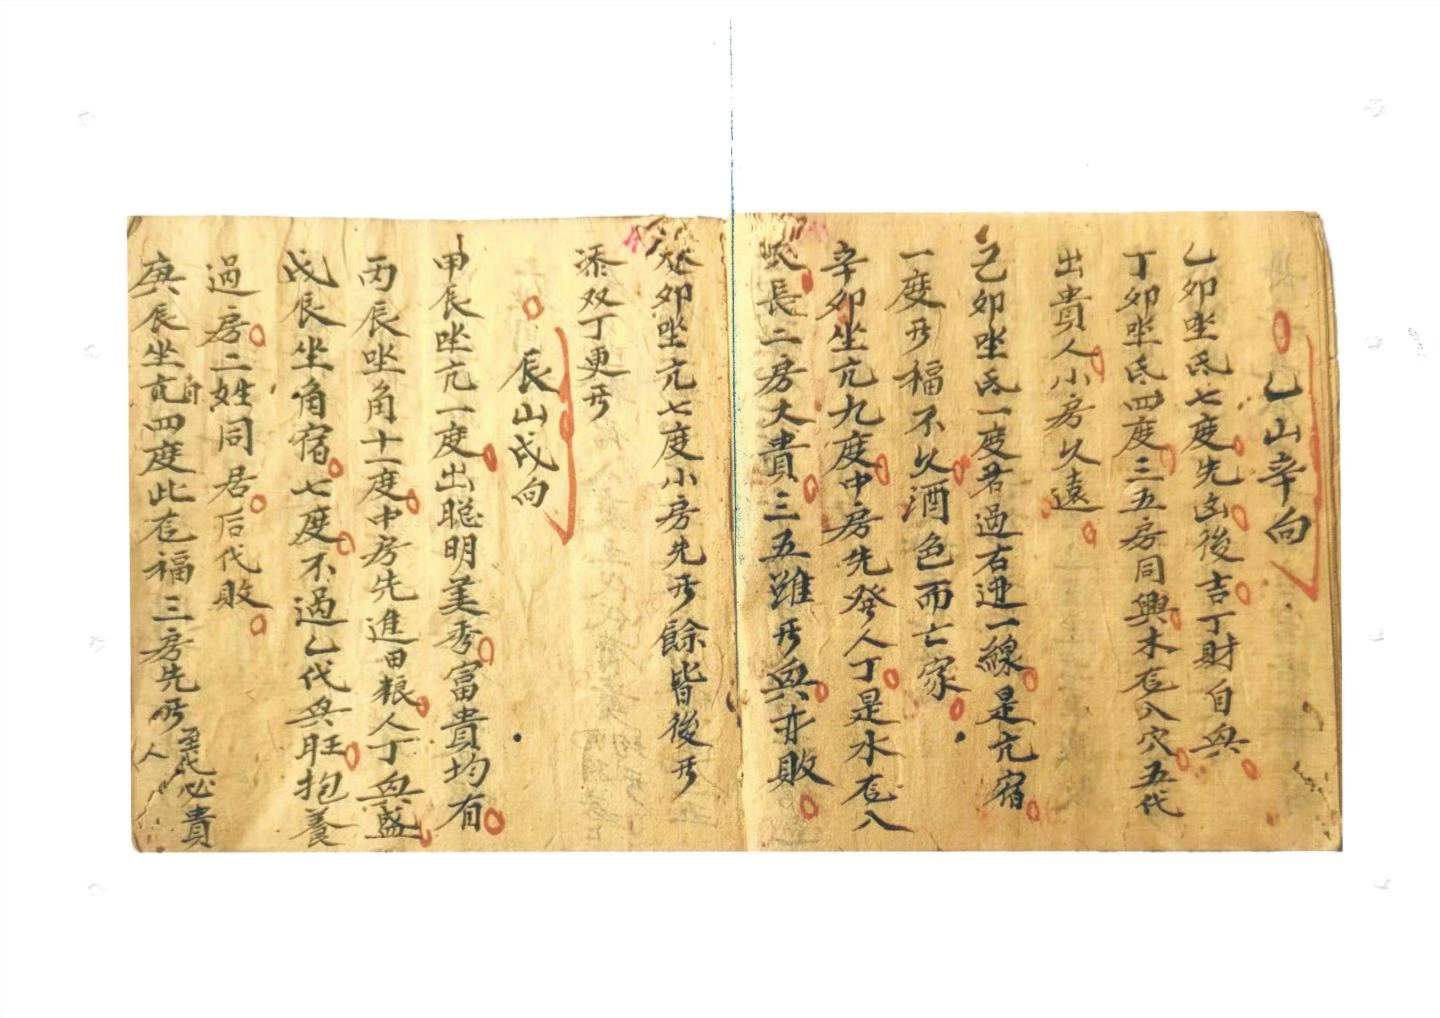 乙山辛向
乙卯坐氐七度先凶後吉丁財自興
丁卯坐氐四度三五房同興木根入穴五代
出貴人小房久遠
己卯坐氐一度若過右邊一線是亢宿
一度開福不久酒色而亡家
辛卯坐亢九度中房先發人丁是水根入
長二房大貴三五雖開興亦敗
癸卯坐亢七度小房先開餘皆後開
添双丁更開
辰山戌向
甲辰坐亢一度出聪明美秀富貴均有
丙辰坐角十一度中房先進田粮人丁興盛
戊辰坐角宿七度不過乙代興旺抱養
過房二姓同居后代敗
庚辰坐角四度此 福三房先 五代必貴人